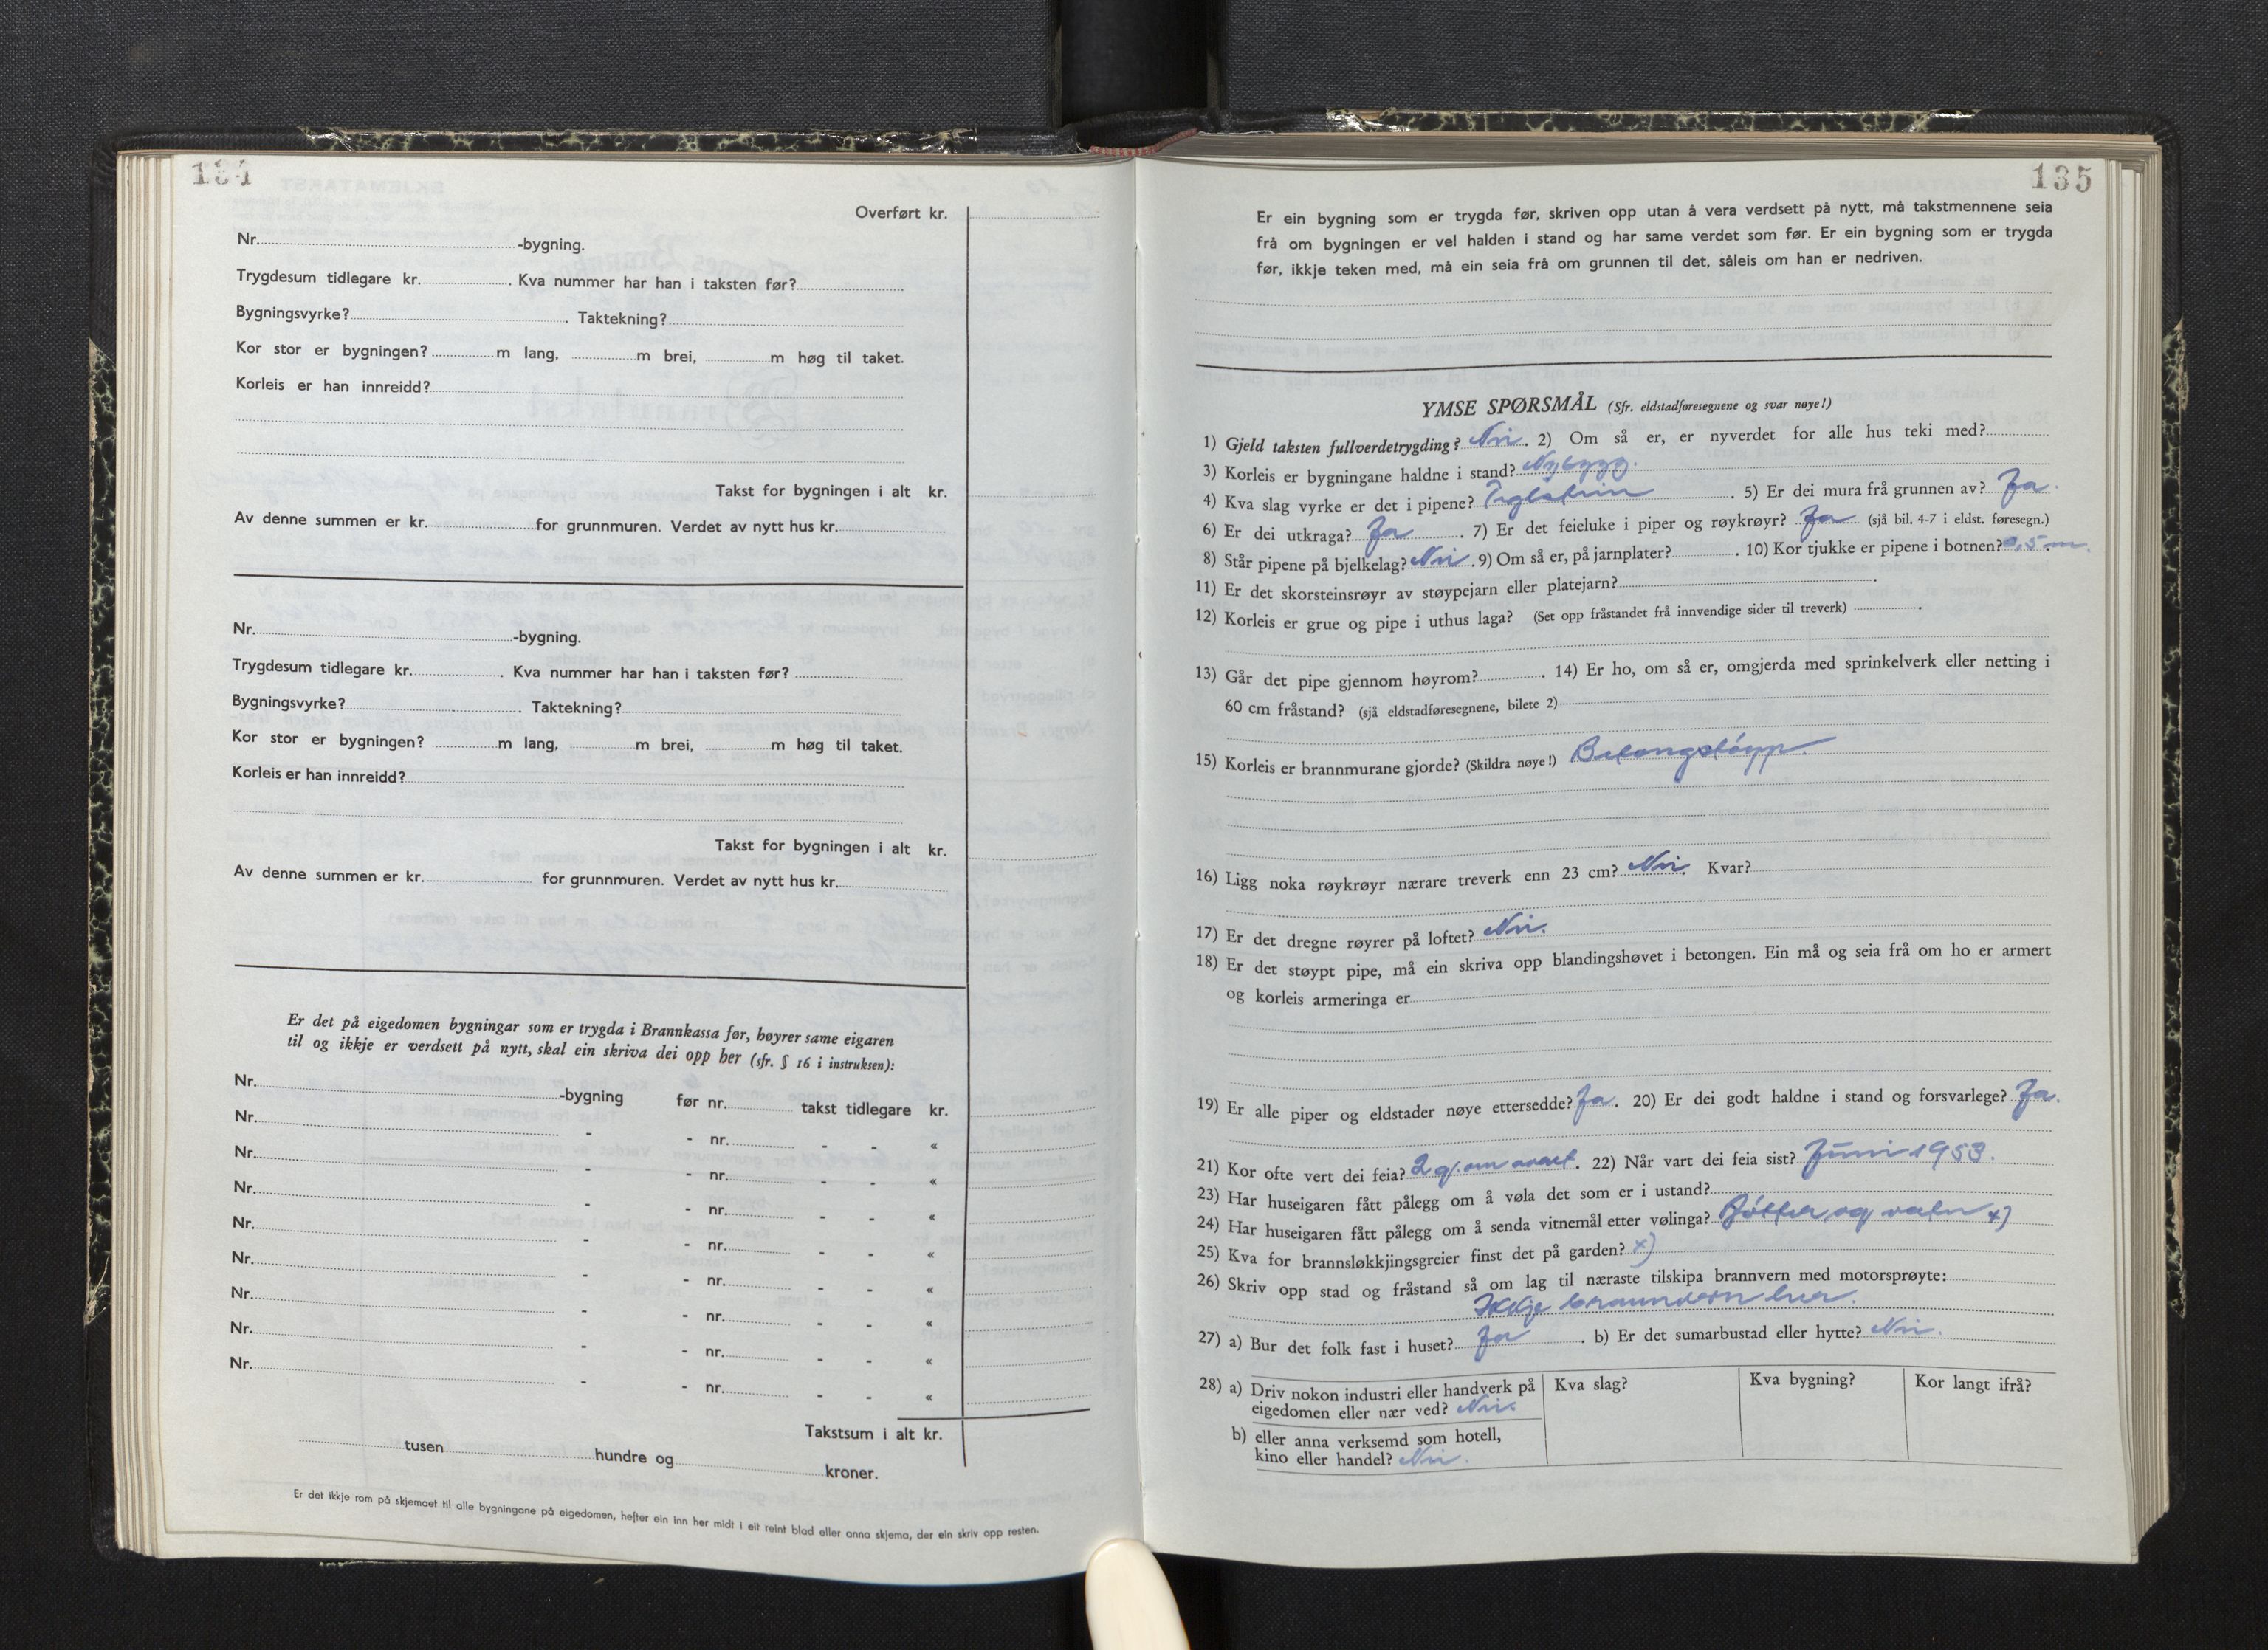 134
Overført kr.
Nr. -bygning.
Trygdesum tidlegare kr. . Kva nummer har han i taksten før?
Bygningsvyrke? . Taktekning?
Kor stor er bygningen? m lang, m brei, m høg til taket.
Korleis er han innreidd?
Takst for bygningen i alt kr.
Av denne summen er kr. for grunnmuren. Verdet av nytt hus kr.
Nr. -bygning.
Trygdesum tidlegare kr. . Kva nummer har han i taksten før?
Bygningsvyrke? . Taktekning?
Kor stor er bygningen? m lang, m brei, m høg til taket.
Korleis er han innreidd?
Takst for bygningen i alt kr.
Av denne summen er kr. for grunnmuren. Verdet av nytt hus kr.
Er det på eigedomen bygningar som er trygda i Brannkassa før, høyrer same eigaren
til og ikkje er verdsett på nytt, skal ein skriva dei opp her (sfr. § 16 i instruksen):
Nr. -bygning før nr. takst tidlegare kr.
Nr. - - nr. - - «
Nr. - - nr. - - «
Nr. - - nr. - - «
Nr. - - nr. - - «
Nr. - - nr. - - «
Nr. - - nr. - - «
Nr. - - nr. - - «
Nr. - - nr. - - «
Takstsum i alt kr.
tusen hundre og kroner.
Er det ikkje rom på skjemaet til alle bygningane på eigedomen, hefter ein inn her midt i eit reint blad eller anna skjema, der ein skriv opp resten.
135
Er ein bygning som er trygda før, skriven opp utan å vera verdsett på nytt, må takstmennene seia
frå om bygningen er vel halden i stand og har same verdet som før. Er ein bygning som er trygda
før, ikkje teken med, må ein seia frå om grunnen til det, såleis om han er nedriven.
YMSE SPØRSMÅL (Sfr. eldstadføresegnene og svar nøye!)
1) Gjeld taksten fullverdetrygding? Nei. 2) Om så er, er nyverdet for alle hus teki med?
3) Korleis er bygningane haldne i stand? Nybygg.
4) Kva slag vyrke er det i pipene? Teglstein . 5) Er dei mura frå grunnen av? Ja.
6) Er dei utkraga? Ja . 7) Er det feieluke i piper og røykrøyr? Ja (sjå bil. 4-7 i eldst. føresegn.)
8) Står pipene på bjelkelag? Nei . 9) Om så er, på jarnplater? . 10) Kor tjukke er pipene i botnen? 0,5 m.
11) Er det skorsteinsrøyr av støypejarn eller platejarn? .
12) Korleis er grue og pipe i uthus laga? (Set opp fråstandet frå innvendige sider til treverk) .
13) Går det pipe gjennom høyrom? . 14) Er ho, om så er, omgjerda med sprinkelverk eller netting i
60 cm fråstand? (sjå eldstadføresegnene, bilete 2)
15) Korleis er brannmurane gjorde? (Skildra nøye!) Betongstøyp.
16) Ligg noka røykrøyr nærare treverk enn 23 cm? Nei. Kvar?
17) Er det dregne røyrer på loftet? Nei.
18) Er det støypt pipe, må ein skriva opp blandingshøvet i betongen. Ein må og seia frå om ho er armert
og korleis armeringa er
19) Er alle piper og eldstader nøye ettersedde? Ja. 20) Er dei godt haldne i stand og forsvarlege? Ja.
21) Kor ofte vert dei feia? 2 g. om året. 22) Når vart dei feia sist? Juni 1953.
23) Har huseigaren fått pålegg om å vøla det som er i ustand?
24) Har huseigaren fått pålegg om å senda vitnemål etter vølinga? Bøtter og vatn x)
25) Kva for brannsløkkjingsgreier finst det på garden? x)
26) Skriv opp stad og fråstand så om lag til næraste tilskipa brannvern med motorsprøyte:
Ikkje brannvern her.
27) a) Bur det folk fast i huset? Ja . b) Er det sumarbustad eller hytte? Nei.
28) a) Driv nokon industri eller handverk på
eigedomen eller nær ved? Nei.
Kva slag? Kva bygning? Kor langt ifrå?
b) eller anna verksemd som hotell,
kino eller handel? Nei.